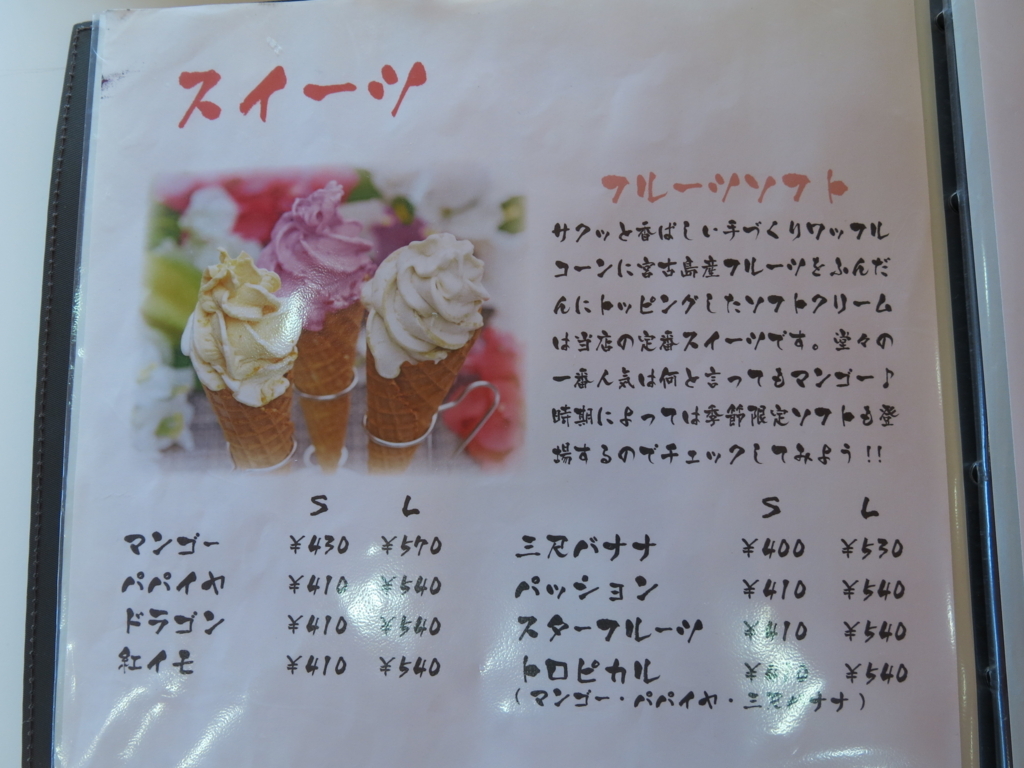 スイーツ
フルーツソフト
サクッと香ばしい手づくりワッフル
コーンに宮古島産フルーツをふんだ
んにトッピングしたソフトクリーム
は当店の定番スイーツです。堂々の
一番人気は何と言ってもマンゴー♪
時期によっては季節限定ソフトも登
場するのでチェックしてみよう!!
S L
マンゴー ¥430 ¥570
パパイヤ ¥410 ¥540
ドラゴン ¥410 ¥540
紅イモ ¥410 ¥540
S L
三尺バナナ ¥400 ¥530
パッション ¥410 ¥540
スターフルーツ ¥410 ¥540
トロピカル ¥540
(マンゴー・パパイヤ・三尺バナナ)